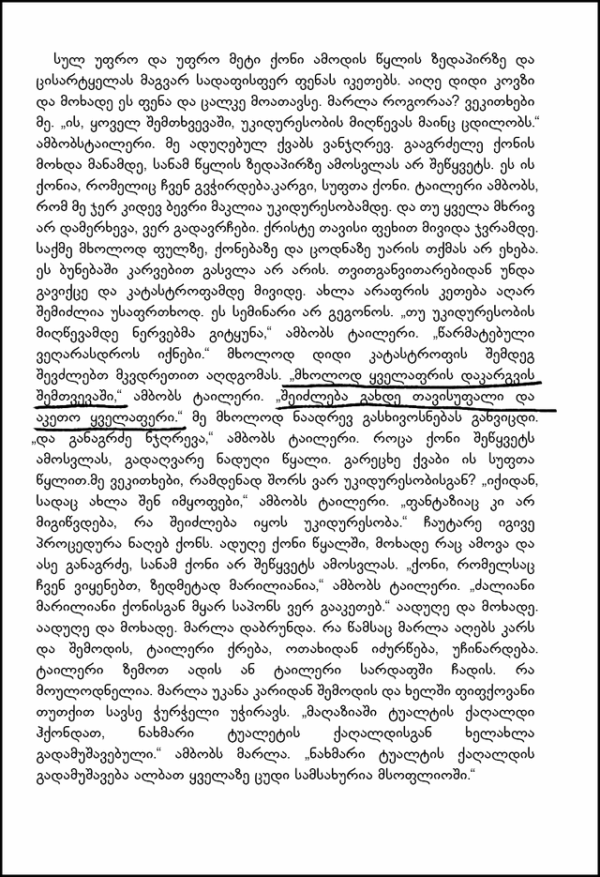 სულ უფრო და უფრო მეტი ქონი ამოდის წყლის ზედაპირზე და
ცისარტყელას მაგვარ სადაფისფერ ფენას იკეთებს. აიღე დიდი კოვზი
და მოხადე ეს ფენა და ცალკე მოათავსე. მარლა როგორაა? ვეკითხები
მე. „ის, ყოველ შემთხვევაში, უკიდურესობის მიღწევას მაინც ცდილობს.“
ამბობსტაილერი. მე ადუღებულ ქვაბს ვანჯღრევ. გააგრძელე ქონის
მოხდა მანამდე, სანამ წყლის ზედაპირზე ამოსვლას არ შეწყვეტს. ეს ის
ქონია, რომელიც ჩვენ გვჭირდება.კარგი, სუფთა ქონი. ტაილერი ამბობს,
რომ მე ჯერ კიდევ ბევრი მაკლია უკიდურესობამდე. და თუ ყველა მხრივ
არ დამერხევა, ვერ გადავრჩები. ქრისტე თავისი ფეხით მივიდა ჯვრამდე.
საქმე მხოლოდ ფულზე, ქონებაზე და ცოდნაზე უარის თქმას არ ეხება.
ეს ბუნებაში კარვებით გასვლა არ არის. თვითგანვითარებიდან უნდა
გავიქცე და კატასტროფამდე მივიდე. ახლა არაფრის კეთება აღარ
შემიძლია უსაფრთხოდ. ეს სემინარი არ გეგონოს. „თუ უკიდურესობის
მიღწევამდე ნერვებმა გიტყუნა,“ ამბობს ტაილერი. „წარმატებული
ვეღარასდროს იქნები.“ მხოლოდ დიდი კატასტროფის შემდეგ
შევძლებთ მკვდრეთით აღდგომას. „მხოლოდ ყველაფრის დაკარგვის
შემთვევაში,“ ამბობს ტაილერი. „შეიძლება გახდე თავისუფალი და
აკეთო ყველაფერი.“ მე მხოლოდ ნაადრევ გასხივოსნებას განვიცდი.
„და განაგრძე ნჯღრევა,“ ამბობს ტაილერი. როცა ქონი შეწყვეტს
ამოსვლას, გადაღვარე ნადუღი წყალი. გარეცხე ქვაბი ის სუფთა
წყლით.მე ვეკითხები, რამდენად შორს ვარ უკიდურესობისგან? „იქიდან,
სადაც ახლა შენ იმყოფები,“ ამბობს ტაილერი. „ფანტაზიაც კი არ
მიგიწვდება, რა შეიძლება იყოს უკიდურესობა.“ ჩაუტარე იგივე
პროცედურა ნაღებ ქონს. ადუღე ქონი წყალში, მოხადე რაც ამოვა და
ასე განაგრძე, სანამ ქონი არ შეწყვეტს ამოსვლას. „ქონი, რომელსაც
ჩვენ ვიყენებთ, ზედმეტად მარილიანია,“ ამბობს ტაილერი. „ძალიანი
მარილიანი ქონისგან მყარ საპონს ვერ გააკეთებ.“ აადუღე და მოხადე.
აადუღე და მოხადე. მარლა დაბრუნდა. რა წამსაც მარლა აღებს კარს
და შემოდის, ტაილერი ქრება, ოთახიდან იძურწება, უჩინარდება.
ტაილერი ზემოთ ადის ან ტაილერი სარდაფში ჩადის. რა
მოულოდნელია. მარლა უკანა კარიდან შემოდის და ხელში ფიფქოვანი
თუთქით სავსე ჭურჭელი უჭირავს. „მაღაზიაში ტუალტის ქაღალდი
ჰქონდათ, ნახმარი ტუალეტის ქაღალდისგან ხელახლა
გადამუშავებული.“ ამბობს მარლა. „ნახმარი ტუალტის ქაღალდის
გადამუშავება ალბათ ყველაზე ცუდი სამსახურია მსოფლიოში.“